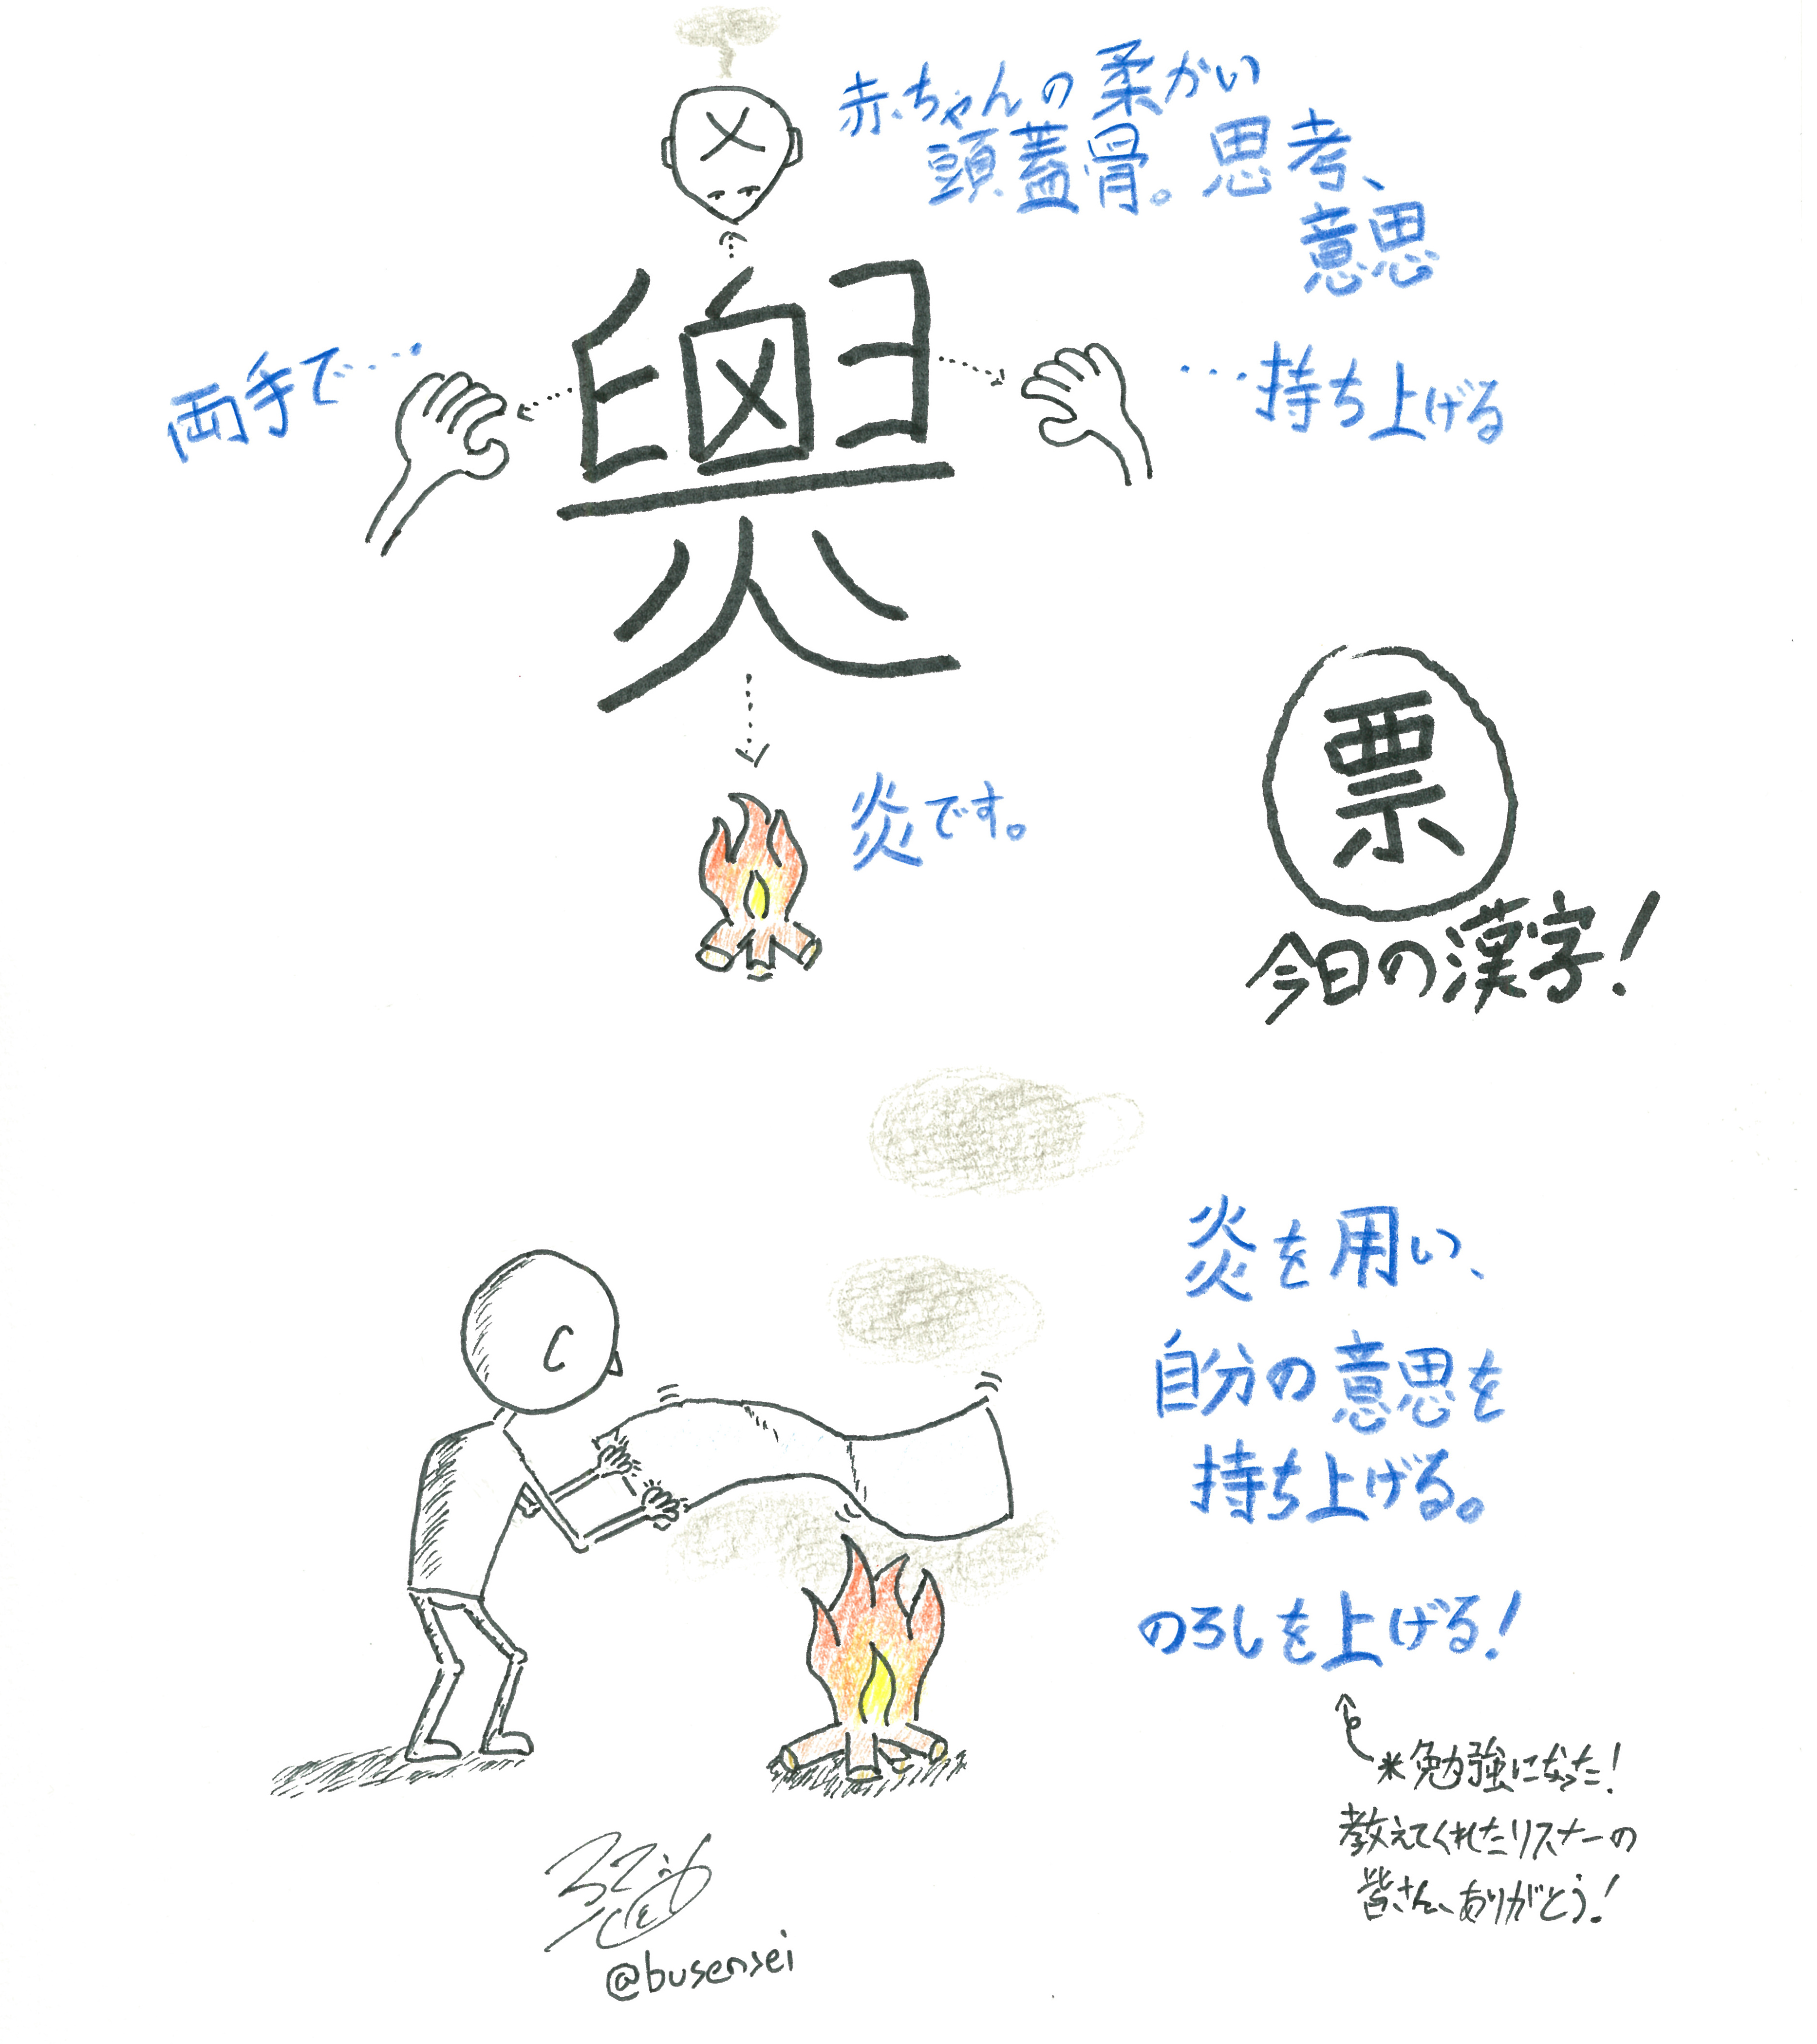 赤ちゃんの柔かい
頭蓋骨。思考、
意思
両手で…
…持ち上げる
炎です。
票
今日の漢字!
炎を用い、
自分の意思を
持ち上げる。
のろしを上げる!
*勉強になった!
教えてくれたリスナーの
皆さん、ありがとう!
@busensei